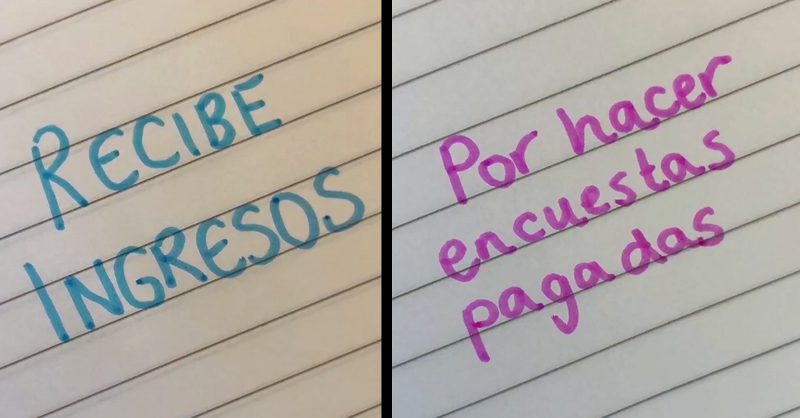 RECIBE
INGRESOS
Por hacer
encuestas
pagadas